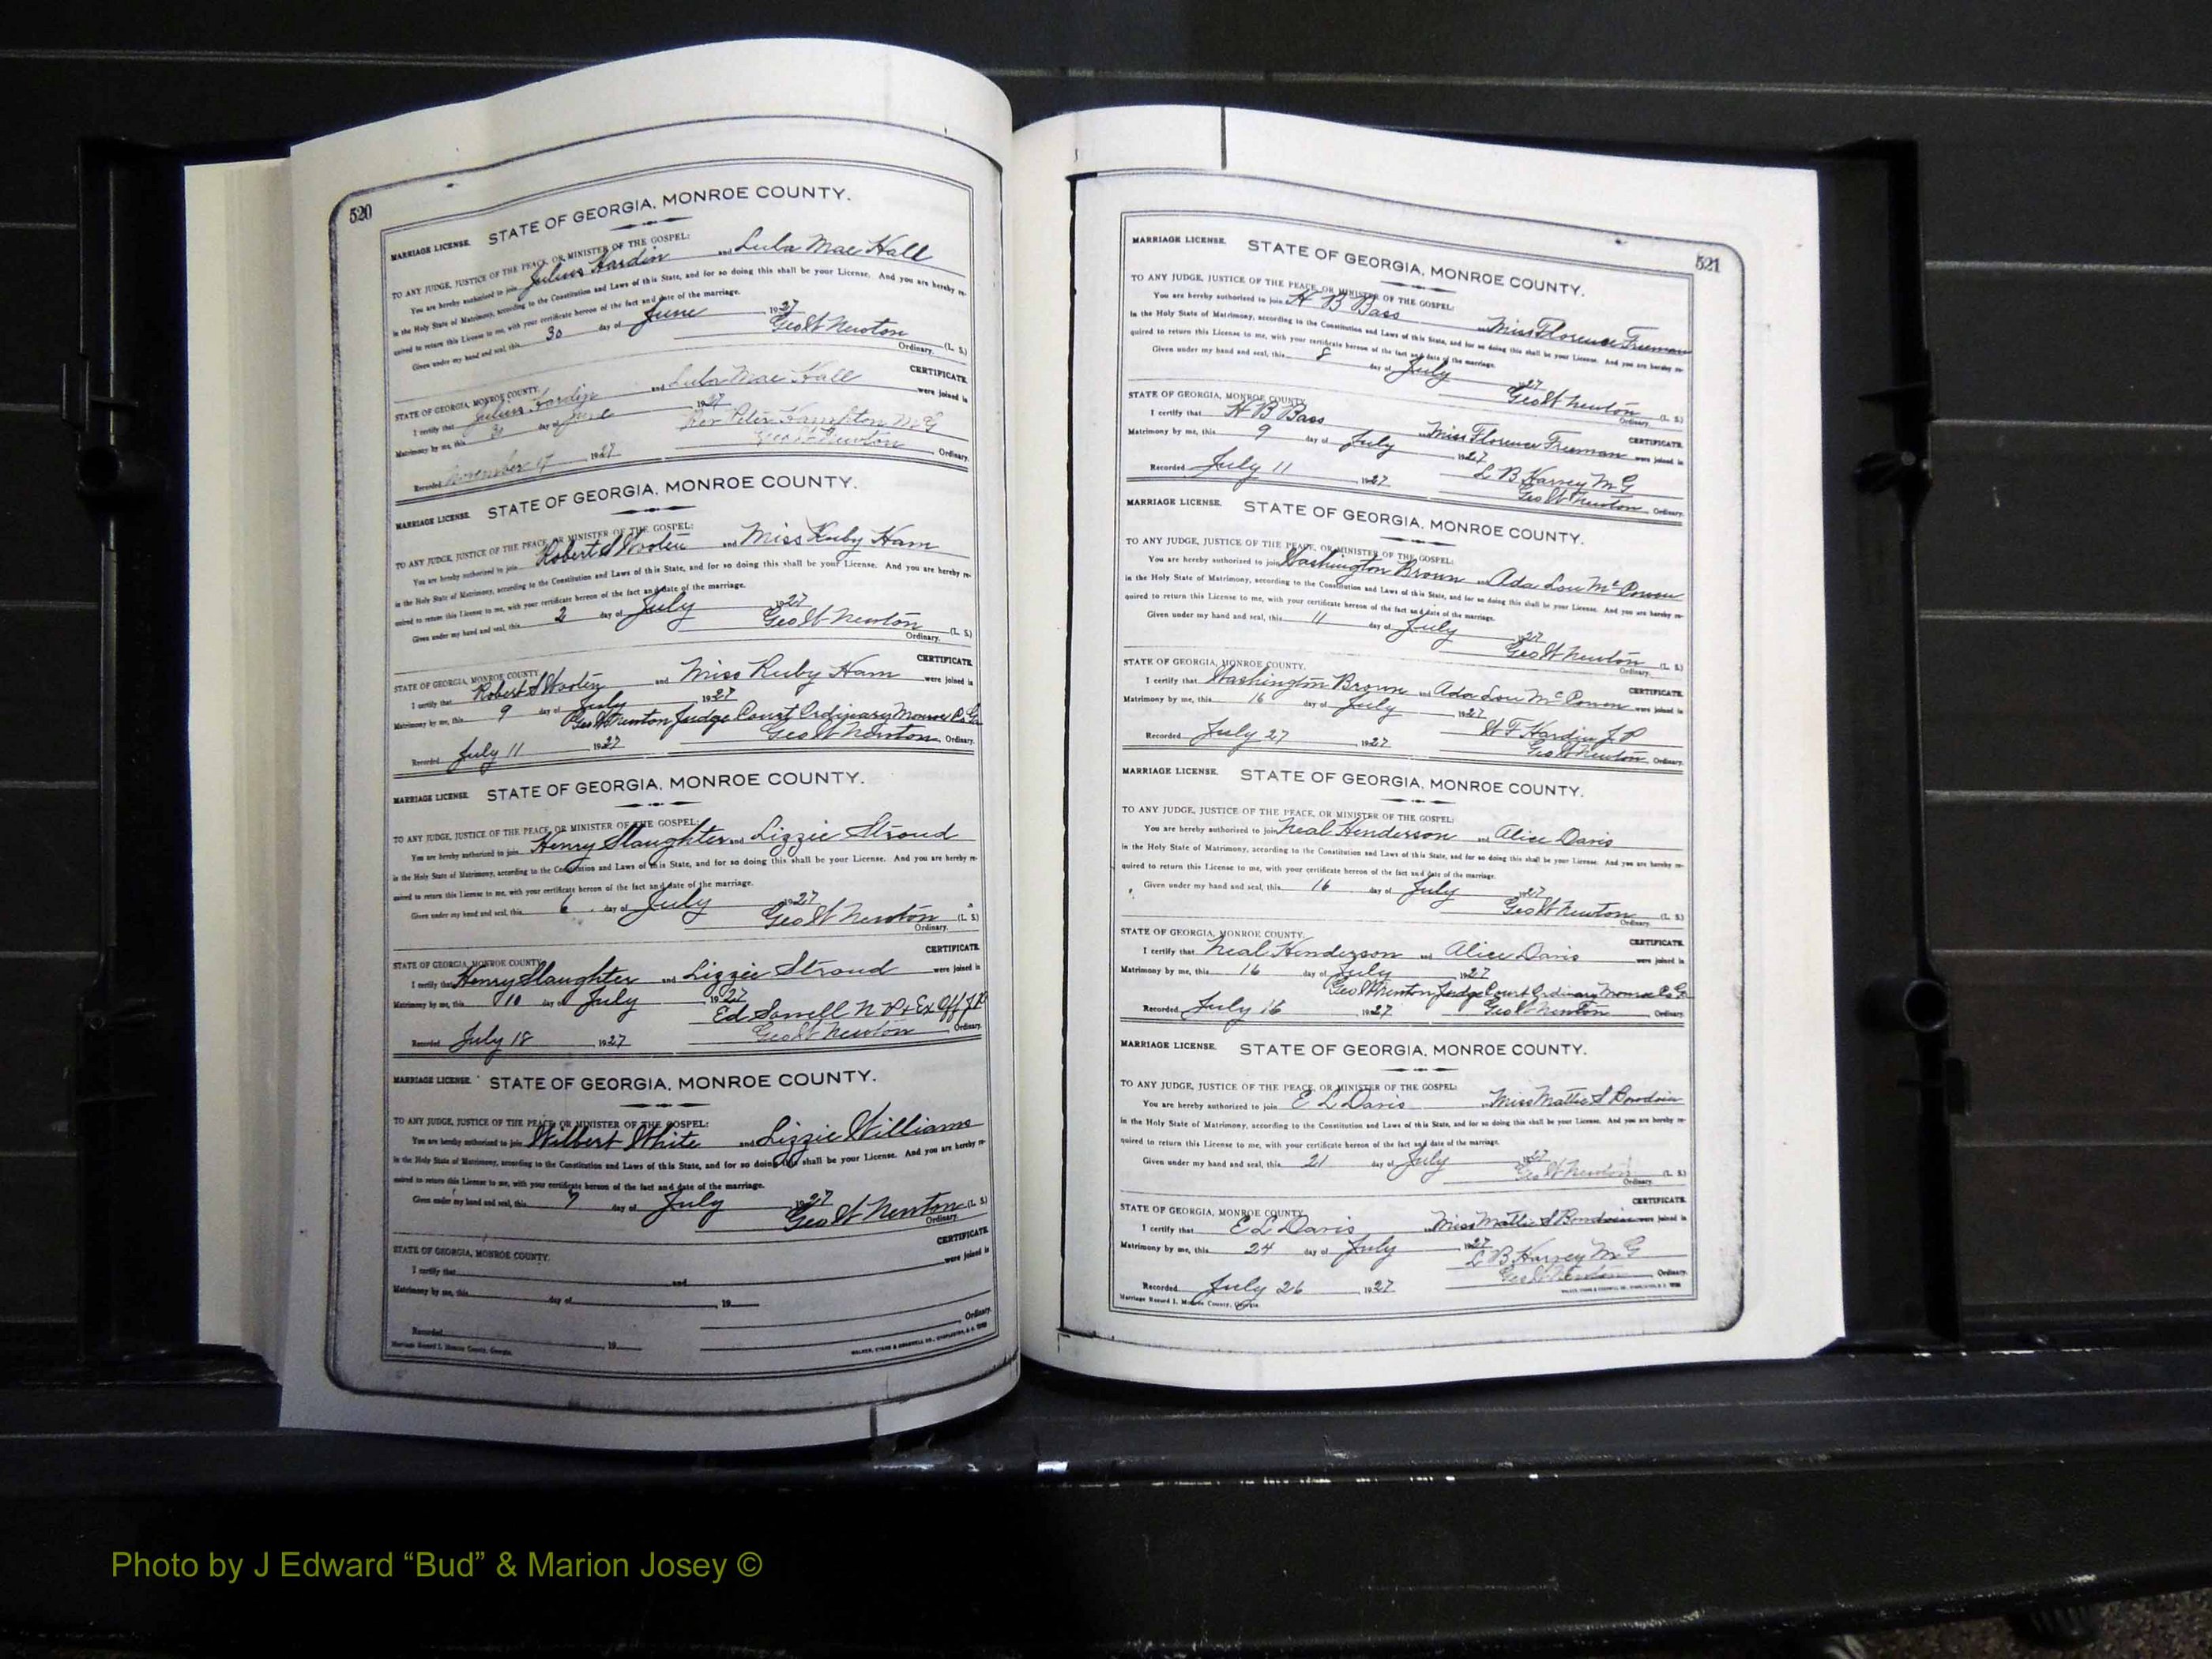 520
STATE OF GEORGIA, MONROE COUNTY.
MARRIAGE LICENSE.
TO ANY JUDGE, JUSTICE OF THE PEACE, OR MINISTER OF THE GOSPEL:
You are hereby authorized to join Julius Hardin and Lula Mae Hall
in the Holy State of Matrimony, according to the Constitution and Laws of this State, and for so doing this shall be your License. And you are hereby re-
quired to return this License to me, with your certificate hereon of the fact and date of the marriage.
Given under my hand and seal, this 30 day of June 1927
Geo W Newton (L. S.)
Ordinary.
CERTIFICATE
STATE OF GEORGIA, MONROE COUNTY.
I certify that Julius Hardin and Lula Mae Hall were joined in
Matrimony by me, this 30 day of June 1927
Rev Peter Hampton M G
Recorded November 1927 Geo W Newton Ordinary.
MARRIAGE LICENSE. STATE OF GEORGIA, MONROE COUNTY.
TO ANY JUDGE, JUSTICE OF THE PEACE, OR MINISTER OF THE GOSPEL:
You are hereby authorized to join Robert S Wooten and Miss Ruby Ham
in the Holy State of Matrimony, according to the Constitution and Laws of this State, and for so doing this shall be your License. And you are hereby re-
quired to return this License to me, with your certificate hereon of the fact and date of the marriage.
Given under my hand and seal, this 2 day of July 1927
Geo W Newton (L. S.)
Ordinary.
CERTIFICATE
STATE OF GEORGIA, MONROE COUNTY.
I certify that Robert S Wooten and Miss Ruby Ham were joined in
Matrimony by me, this 9 day of July 1927
Geo W Newton Judge Court Ordinary Monroe Co Ga
Recorded July 11 1927 Geo W Newton Ordinary.
MARRIAGE LICENSE. STATE OF GEORGIA, MONROE COUNTY.
TO ANY JUDGE, JUSTICE OF THE PEACE, OR MINISTER OF THE GOSPEL:
You are hereby authorized to join Henry Slaughter and Lizzie Stroud
in the Holy State of Matrimony, according to the Constitution and Laws of this State, and for so doing this shall be your License. And you are hereby re-
quired to return this License to me, with your certificate hereon of the fact and date of the marriage.
Given under my hand and seal, this 6 day of July 1927
Geo W Newton (L. S.)
Ordinary.
CERTIFICATE
STATE OF GEORGIA, MONROE COUNTY.
I certify that Henry Slaughter and Lizzie Stroud were joined in
Matrimony by me, this 10 day of July 1927
Ed Sorrell N P & Ex Off J P
Recorded July 18 1927 Geo W Newton Ordinary.
MARRIAGE LICENSE. STATE OF GEORGIA, MONROE COUNTY.
TO ANY JUDGE, JUSTICE OF THE PEACE, OR MINISTER OF THE GOSPEL:
You are hereby authorized to join Wilbert White and Lizzie Williams
in the Holy State of Matrimony, according to the Constitution and Laws of this State, and for so doing this shall be your License. And you are hereby re-
quired to return this License to me, with your certificate hereon of the fact and date of the marriage.
Given under my hand and seal, this 7 day of July 1927
Geo W Newton (L. S.)
Ordinary.
CERTIFICATE
STATE OF GEORGIA, MONROE COUNTY.
I certify that and were joined in
Matrimony by me, this day of , 19
Ordinary.
Recorded 19
Marriage Record I, Monroe County, Georgia.
521
MARRIAGE LICENSE. STATE OF GEORGIA, MONROE COUNTY.
TO ANY JUDGE, JUSTICE OF THE PEACE, OR MINISTER OF THE GOSPEL:
You are hereby authorized to join H B Bass and Miss Florence Freeman
in the Holy State of Matrimony, according to the Constitution and Laws of this State, and for so doing this shall be your License. And you are hereby re-
quired to return this License to me, with your certificate hereon of the fact and date of the marriage.
Given under my hand and seal, this 8 day of July 1927
Geo W Newton (L. S.)
Ordinary.
STATE OF GEORGIA, MONROE COUNTY. CERTIFICATE
I certify that H B Bass and Miss Florence Freeman were joined in
Matrimony by me, this 9 day of July 1927
L B Harvey M G
Recorded July 11 1927 Geo W Newton Ordinary.
MARRIAGE LICENSE. STATE OF GEORGIA, MONROE COUNTY.
TO ANY JUDGE, JUSTICE OF THE PEACE, OR MINISTER OF THE GOSPEL:
You are hereby authorized to join Washington Brown and Ada Lou
in the Holy State of Matrimony, according to the Constitution and Laws of this State, and for so doing this shall be your License. And you are hereby re-
quired to return this License to me, with your certificate hereon of the fact and date of the marriage.
Given under my hand and seal, this 11 day of July 1927
Geo W Newton (L. S.)
Ordinary.
STATE OF GEORGIA, MONROE COUNTY. CERTIFICATE
I certify that Washington Brown and Ada Lou were joined in
Matrimony by me, this 16 day of July 1927
W F Hardin J P
Recorded July 27 1927 Geo W Newton Ordinary.
MARRIAGE LICENSE. STATE OF GEORGIA, MONROE COUNTY.
TO ANY JUDGE, JUSTICE OF THE PEACE, OR MINISTER OF THE GOSPEL:
You are hereby authorized to join Neal Henderson and Alice Davis
in the Holy State of Matrimony, according to the Constitution and Laws of this State, and for so doing this shall be your License. And you are hereby re-
quired to return this License to me, with your certificate hereon of the fact and date of the marriage.
Given under my hand and seal, this 16 day of July 1927
Geo W Newton (L. S.)
Ordinary.
STATE OF GEORGIA, MONROE COUNTY. CERTIFICATE
I certify that Neal Henderson and Alice Davis were joined in
Matrimony by me, this 16 day of July 1927
Geo W Newton Judge Court Ordinary Monroe Co Ga
Recorded July 16 1927 Geo W Newton Ordinary.
MARRIAGE LICENSE. STATE OF GEORGIA, MONROE COUNTY.
TO ANY JUDGE, JUSTICE OF THE PEACE, OR MINISTER OF THE GOSPEL:
You are hereby authorized to join E L Davis and Miss Mattie S Bowdoin
in the Holy State of Matrimony, according to the Constitution and Laws of this State, and for so doing this shall be your License. And you are hereby re-
quired to return this License to me, with your certificate hereon of the fact and date of the marriage.
Given under my hand and seal, this 21 day of July 1927
Geo W Newton (L. S.)
Ordinary.
CERTIFICATE
STATE OF GEORGIA, MONROE COUNTY.
I certify that E L Davis and Miss Mattie S Bowdoin were joined in
Matrimony by me, this 24 day of July 1927
L B Harvey M G
Recorded July 26 1927 Geo W Newton Ordinary.
Marriage Record I, Monroe County, Georgia.
Photo by J Edward “Bud” & Marion Josey ©